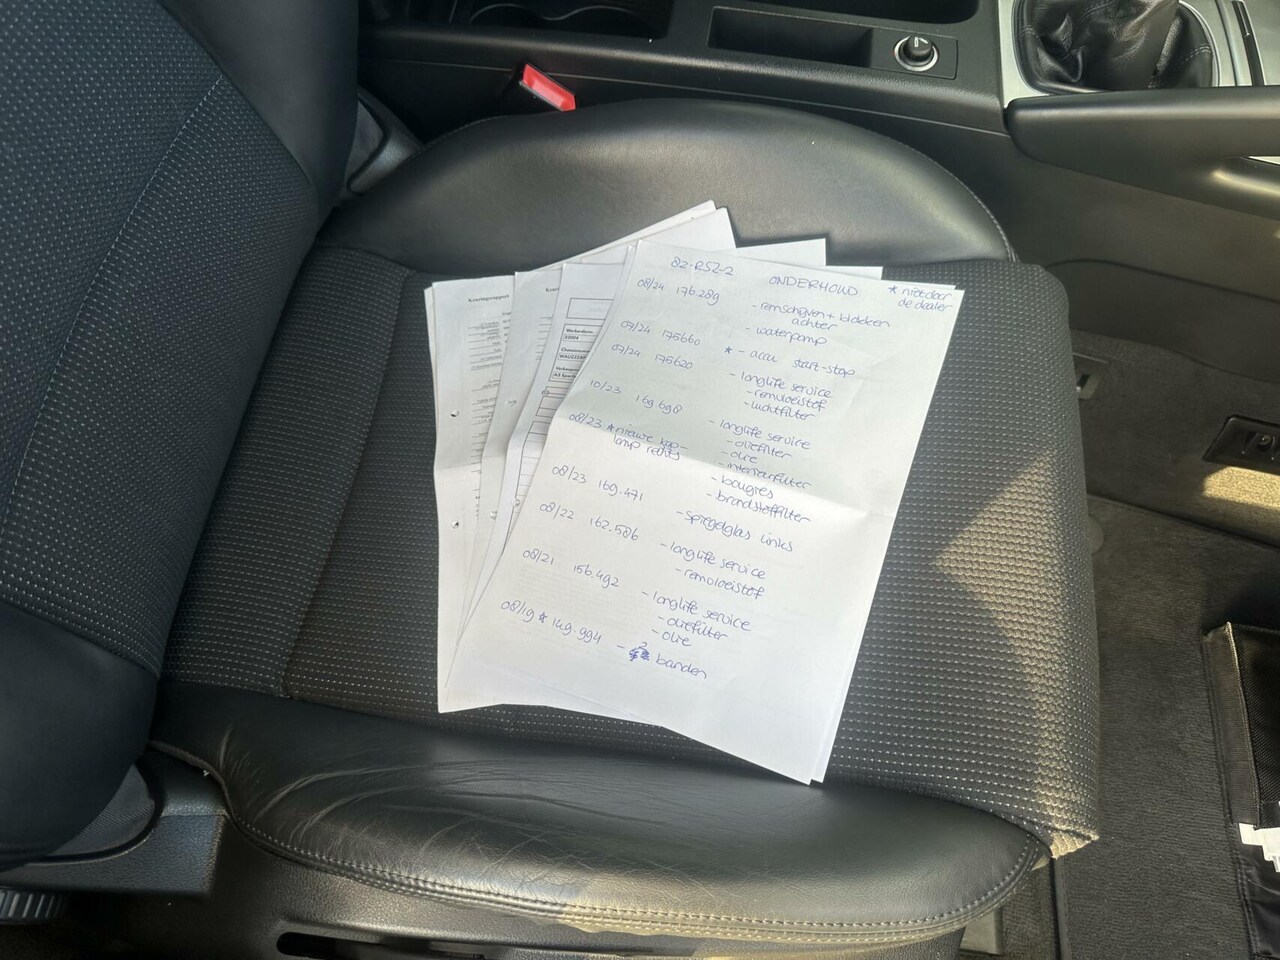 82-RSZ-2 ONDERHOUD * niet door
de dealer
08/24 176.289 - remschijven + blokken
achter
- waterpomp
07/24 175660 * - accu start-stop
07/24 175620 - longlife service
- remvloeistof
- luchtfilter
10/23 169.698 - longlife service
- oliefilter
- olie
- interieurfilter
- bougies
- brandstoffilter
08/23 * nieuwe kop-
lamp rechts
08/23 169.471 - spiegelglas links
08/22 162.586 - longlife service
- remvloeistof
08/21 156.492 - longlife service
- oliefilter
- olie
08/19 * 149.994 - 2 banden
Keuringsrapport